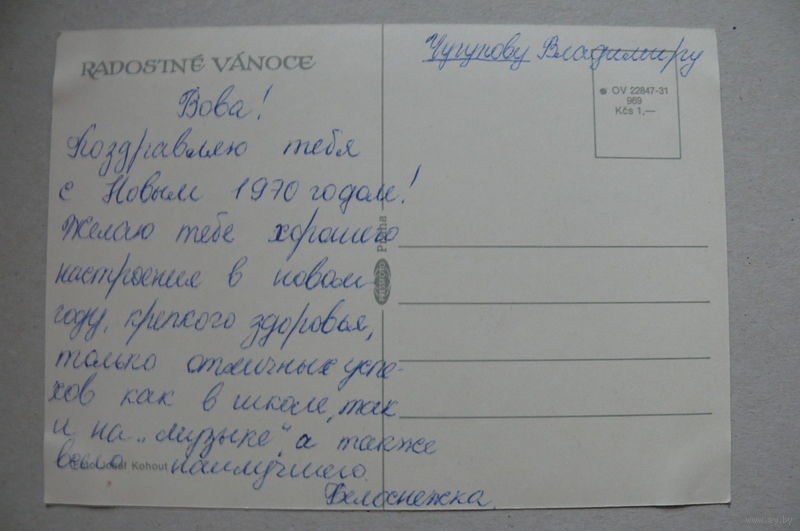 RADOSTNÉ VÁNOCE
Вова!
Поздравляю тебя
с Новым 1970 годом!
Желаю тебе хорошего
настроения в новом
году, крепкого здоровья,
только отличных успе-
хов как в школе, так
и на „музыке“, а также
всего наилучшего.
Белоснежка.
Foto Josef Kohout
Praha
Чугунову Владимиру
OV 22847-31
969
Kčs 1,—